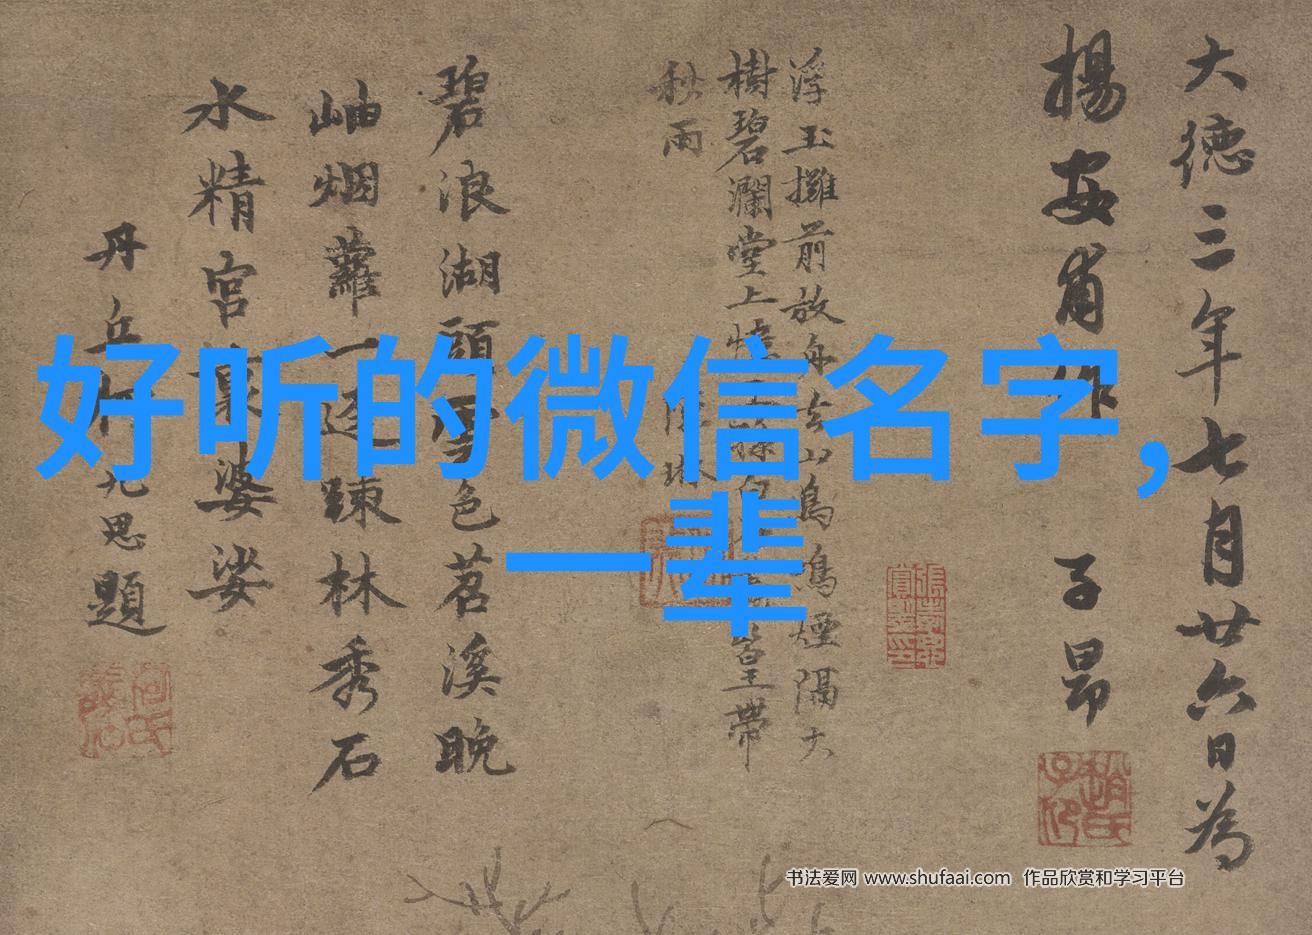 好听的微信名字，
一辈
大徳三年七月廿六日為
揚安甫作 子昂
浮玉攤前放舟去山鳥 煙隔大
樹碧瀾堂上 皇帶
秋雨
碧浪湖頭雲色苕溪晚
岫烟蘿一逕踈林秀石
水精宮裏婆娑
丹丘柯九思題
书法爱网 www.shufaai.com 作品欣赏和学习平台